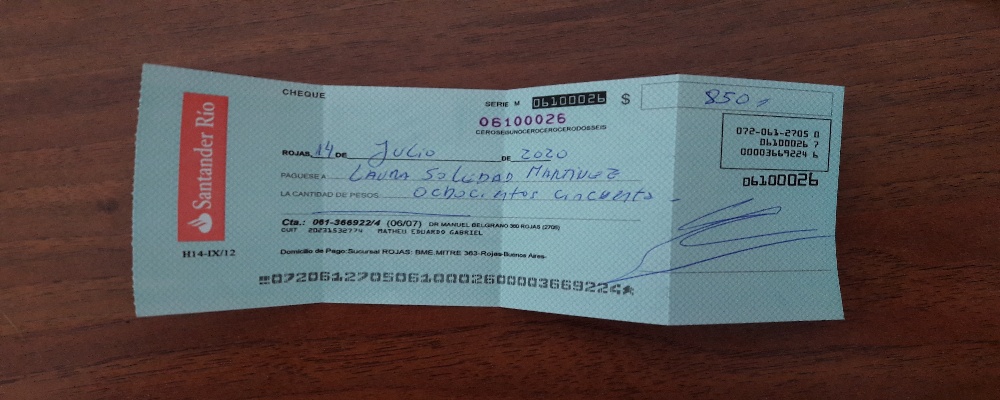 Santander Río
H14-IX/12
CHEQUE
SERIE M 06100026 $ 850,-
06100026
CEROSEISUNOCEROCEROCERODOSSEIS
072-061-2705 0
06100026 7
00003669224 6
06100026
ROJAS, 14 DE Julio DE 2020
PAGUESE A LAURA SOLEDAD MARTINEZ
LA CANTIDAD DE PESOS ochocientos cincuenta -
Cta.: 061-366922/4 (06/07) DR MANUEL BELGRANO 360 ROJAS (2705)
CUIT 20231532774 MATHEU EDUARDO GABRIEL
Domicilio de Pago:Sucursal ROJAS: BME.MITRE 363-Rojas-Buenos Aires-
07206127050610002600003669224